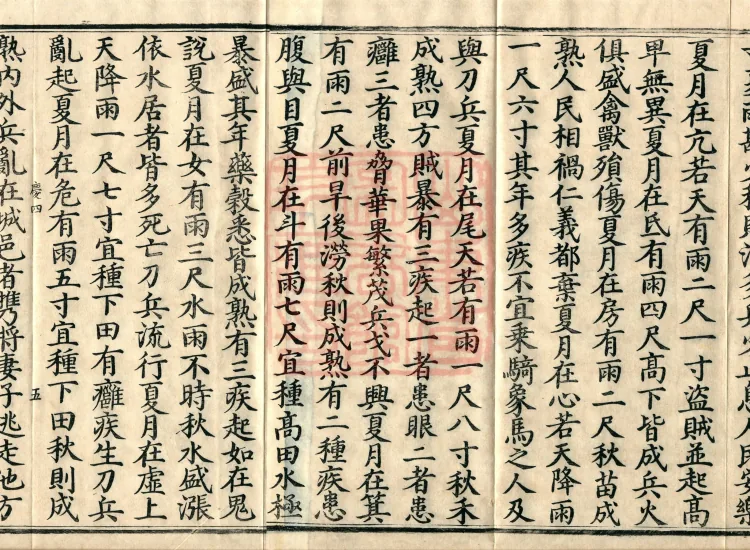 人民安樂
夏月在亢若天有雨二尺一寸盜賊並起高
卑無異夏月在氐有雨四尺高下皆成兵火
俱盛禽獸殞傷夏月在房有雨二尺秋苗成
熟人民相禍仁義都棄夏月在心若天降雨
一尺六寸其年多疾不宜乘騎象馬之人及
與刀兵夏月在尾天若有雨一尺八寸秋禾
成熟四方賊暴有三疾起一者患眼二者患
癰三者患脅華果繁茂兵戈不興夏月在箕
有雨二尺前旱後澇秋則成熟有二種疾患
腹與目夏月在斗有雨七尺宜種高田水極
暴盛其年藥穀悉皆成熟有三疾起如在鬼
說夏月在女有雨三尺水雨不時秋水盛漲
依水居者皆多死亡刀兵流行夏月在虛上
天降雨一尺七寸宜種下田有癰疾生刀兵
亂起夏月在危有雨五寸宜種下田秋則成
慶四 五
熟內外兵亂在城邑者攜將妻子逃走他方